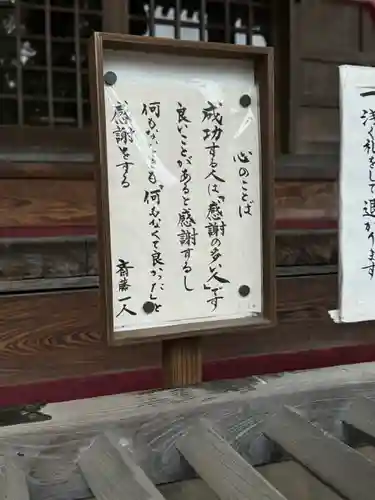 心のことば
成功する人は「感謝の多い人」です
良いことがあると感謝するし
何がなくとも「何もなくて良かった」と
感謝をする
斎藤 一人
浅く礼をして退がります